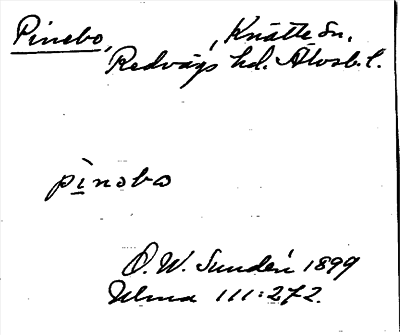 Pinebo, , Knätte sn,
Redvägs hd. Älvsb. l.
pìnebo
D. W. Sundén 1899
Ulma 111:272.